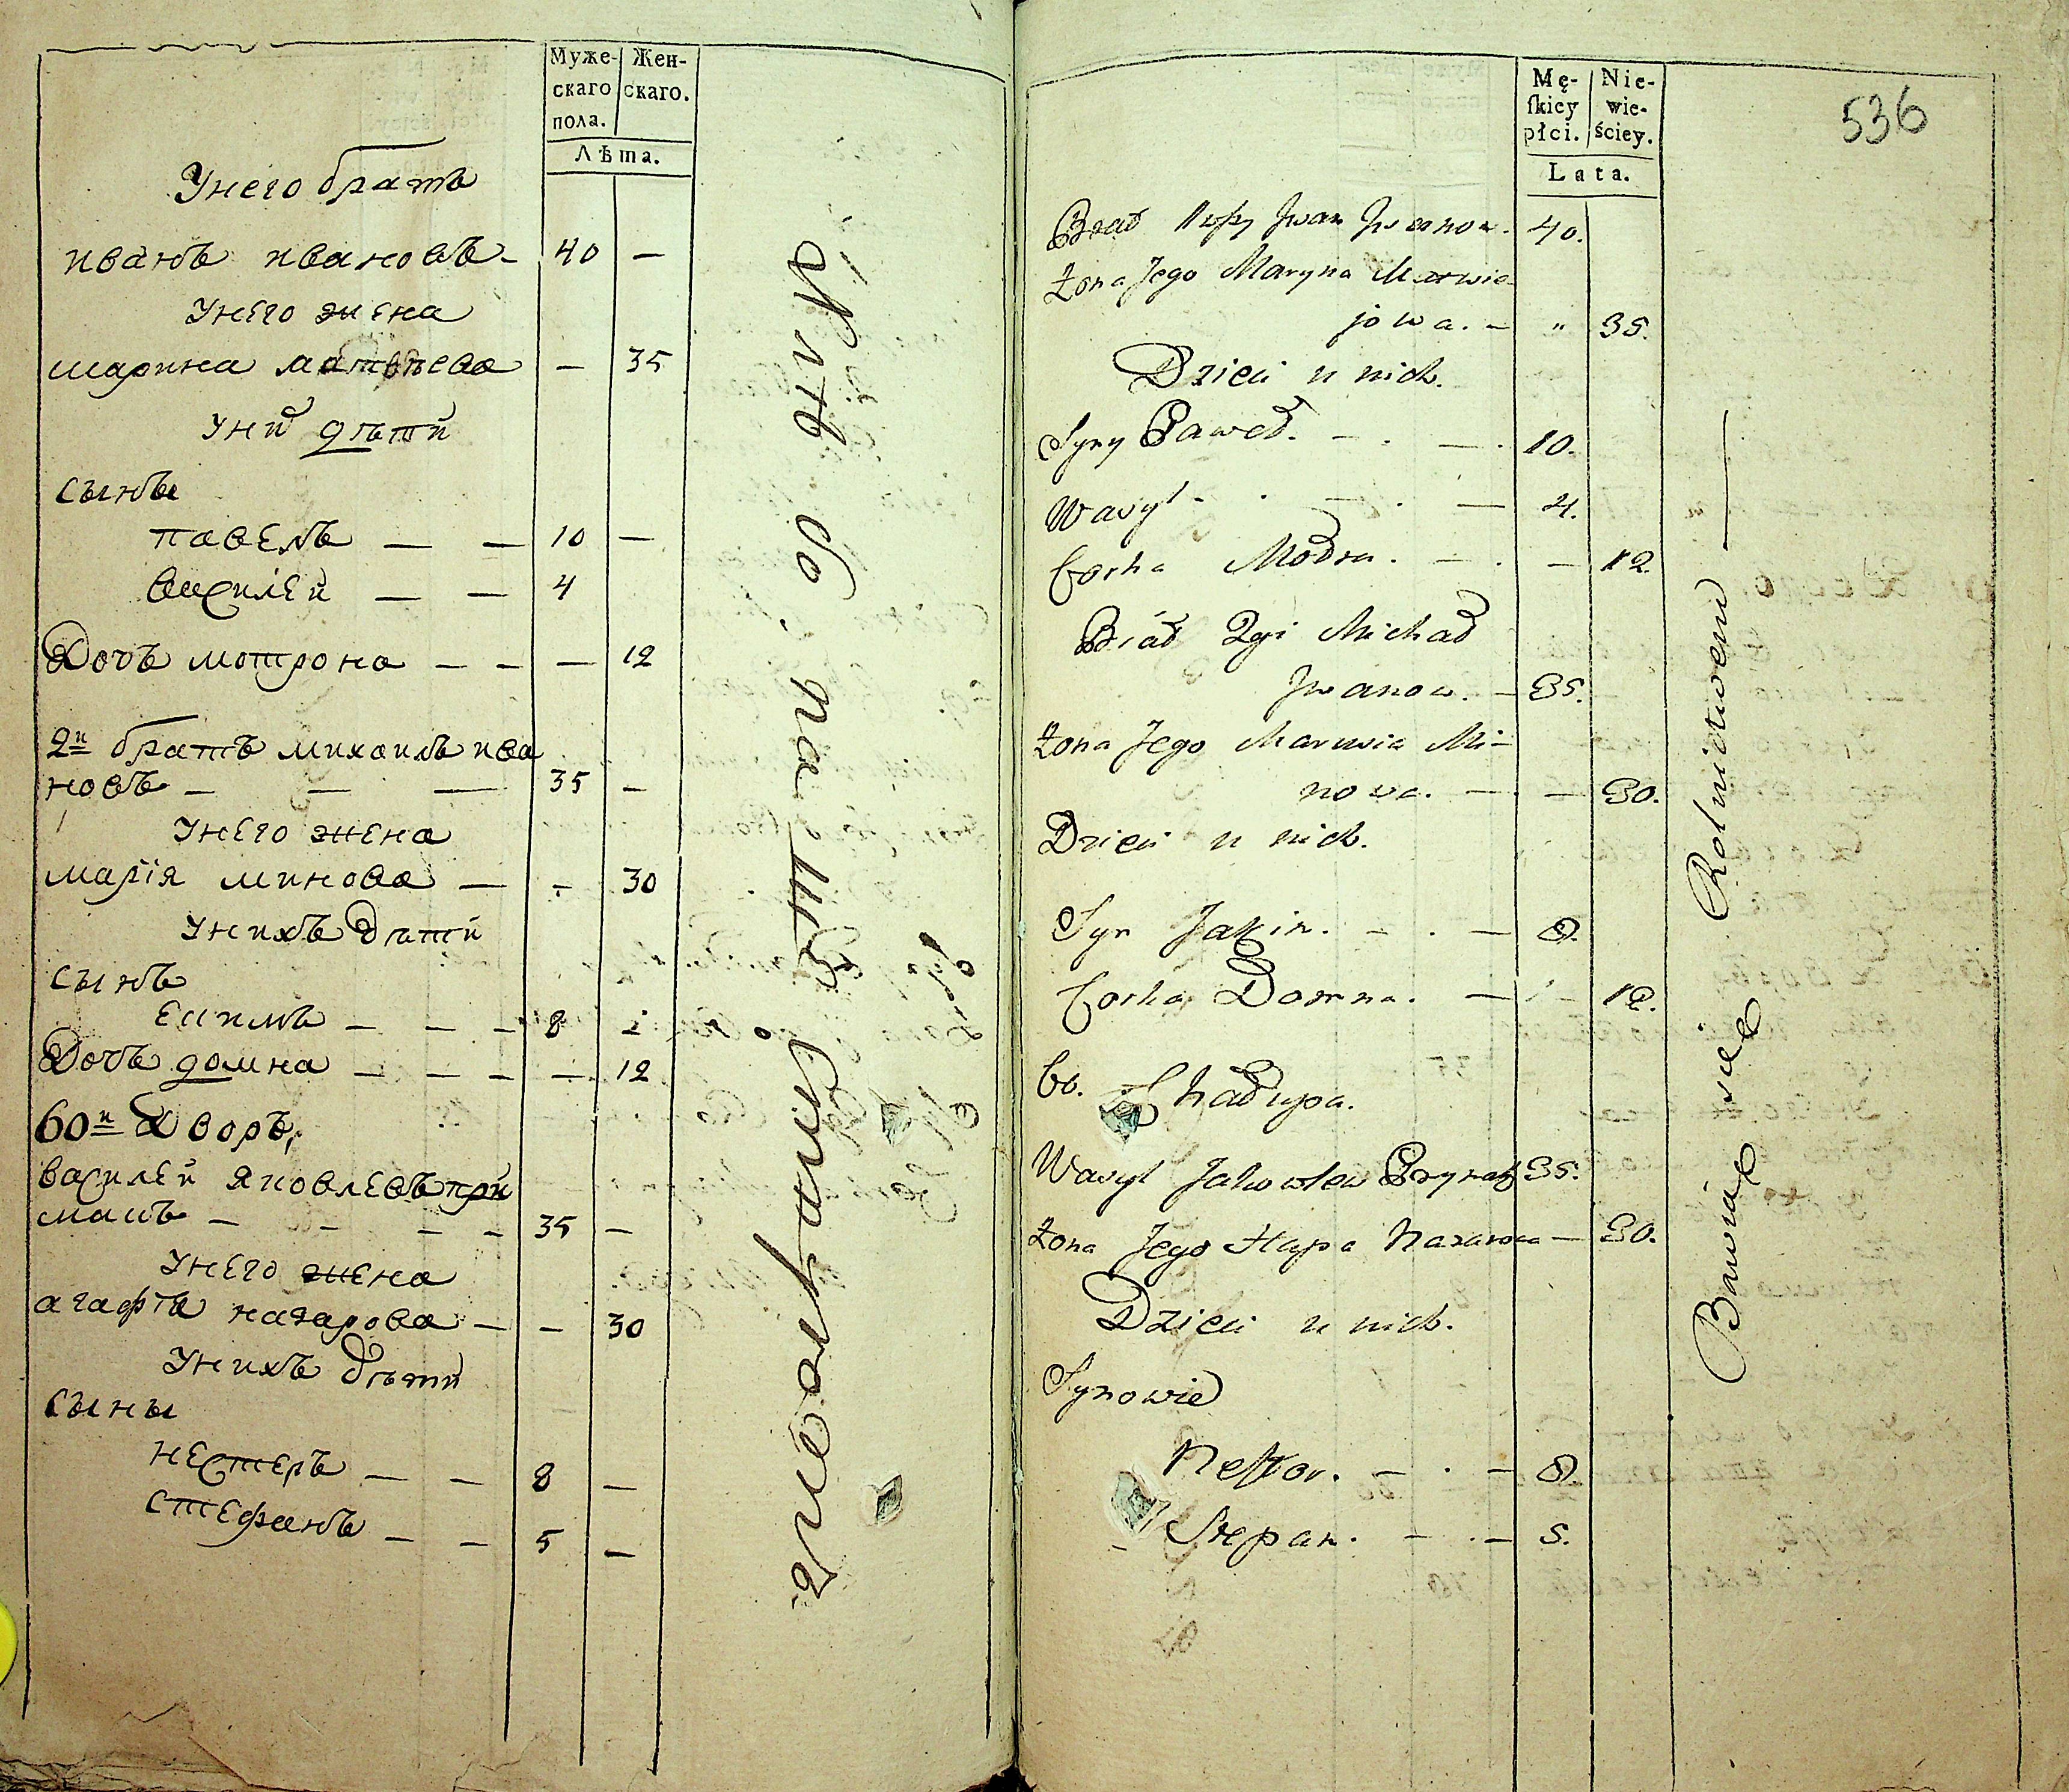 Муже- Жен-
скаго скаго.
пола.
Лѣта.
Унего братъ
иванъ ивановъ - 40 —
Унего жена
марина матвѣева — 35
Уних дѣтӥ
сынъы
павелъ — — 10 —
василей — — 4
Дочь мотрона — — — 12
2й братъ михаилъ ива
новъ — — — 35 —
Унего жена
марія минова — — 30
Унихъ дѣтй
сынъ
Екимъ — — — 8
Дочь домна — — — — 12
60й Дворъ,
василей яковлевъ при
макъ — — — — 35 —
Унего жена
агафія назарова — — 30
Унихъ дѣтй
сыны
нестеръ — — 8 —
стефанъ — — 5 —
Mę- Nie-
skiey wie-
płci. ściey.
Lata.
536
Brat 1wszy Jwan Jwanow. 40.
Żona Jego Maryna Matwie
jowa. — " 35.
Dzieci u nich.
Syny Paweł. — . — . 10.
Wasyl - . — . — 4.
Corka Motra. — . — 12.
Brat 2gi Michał
Jwanow. — 35.
Żona Jego Marwia Mi-
nowa. — — 30.
Dzieci u nich.
Syn Jakim. — . — 8.
Corka Domna. — — 12.
60. Chałupa.
Wasyl Jakowlew Przymak 35.
Żona Jego Hapa Nazarowa — 30.
Dzieci u nich.
Synowie
Nestor. — . — 8.
Stepan. — . — 5.
Bawią się Rolnictwem —